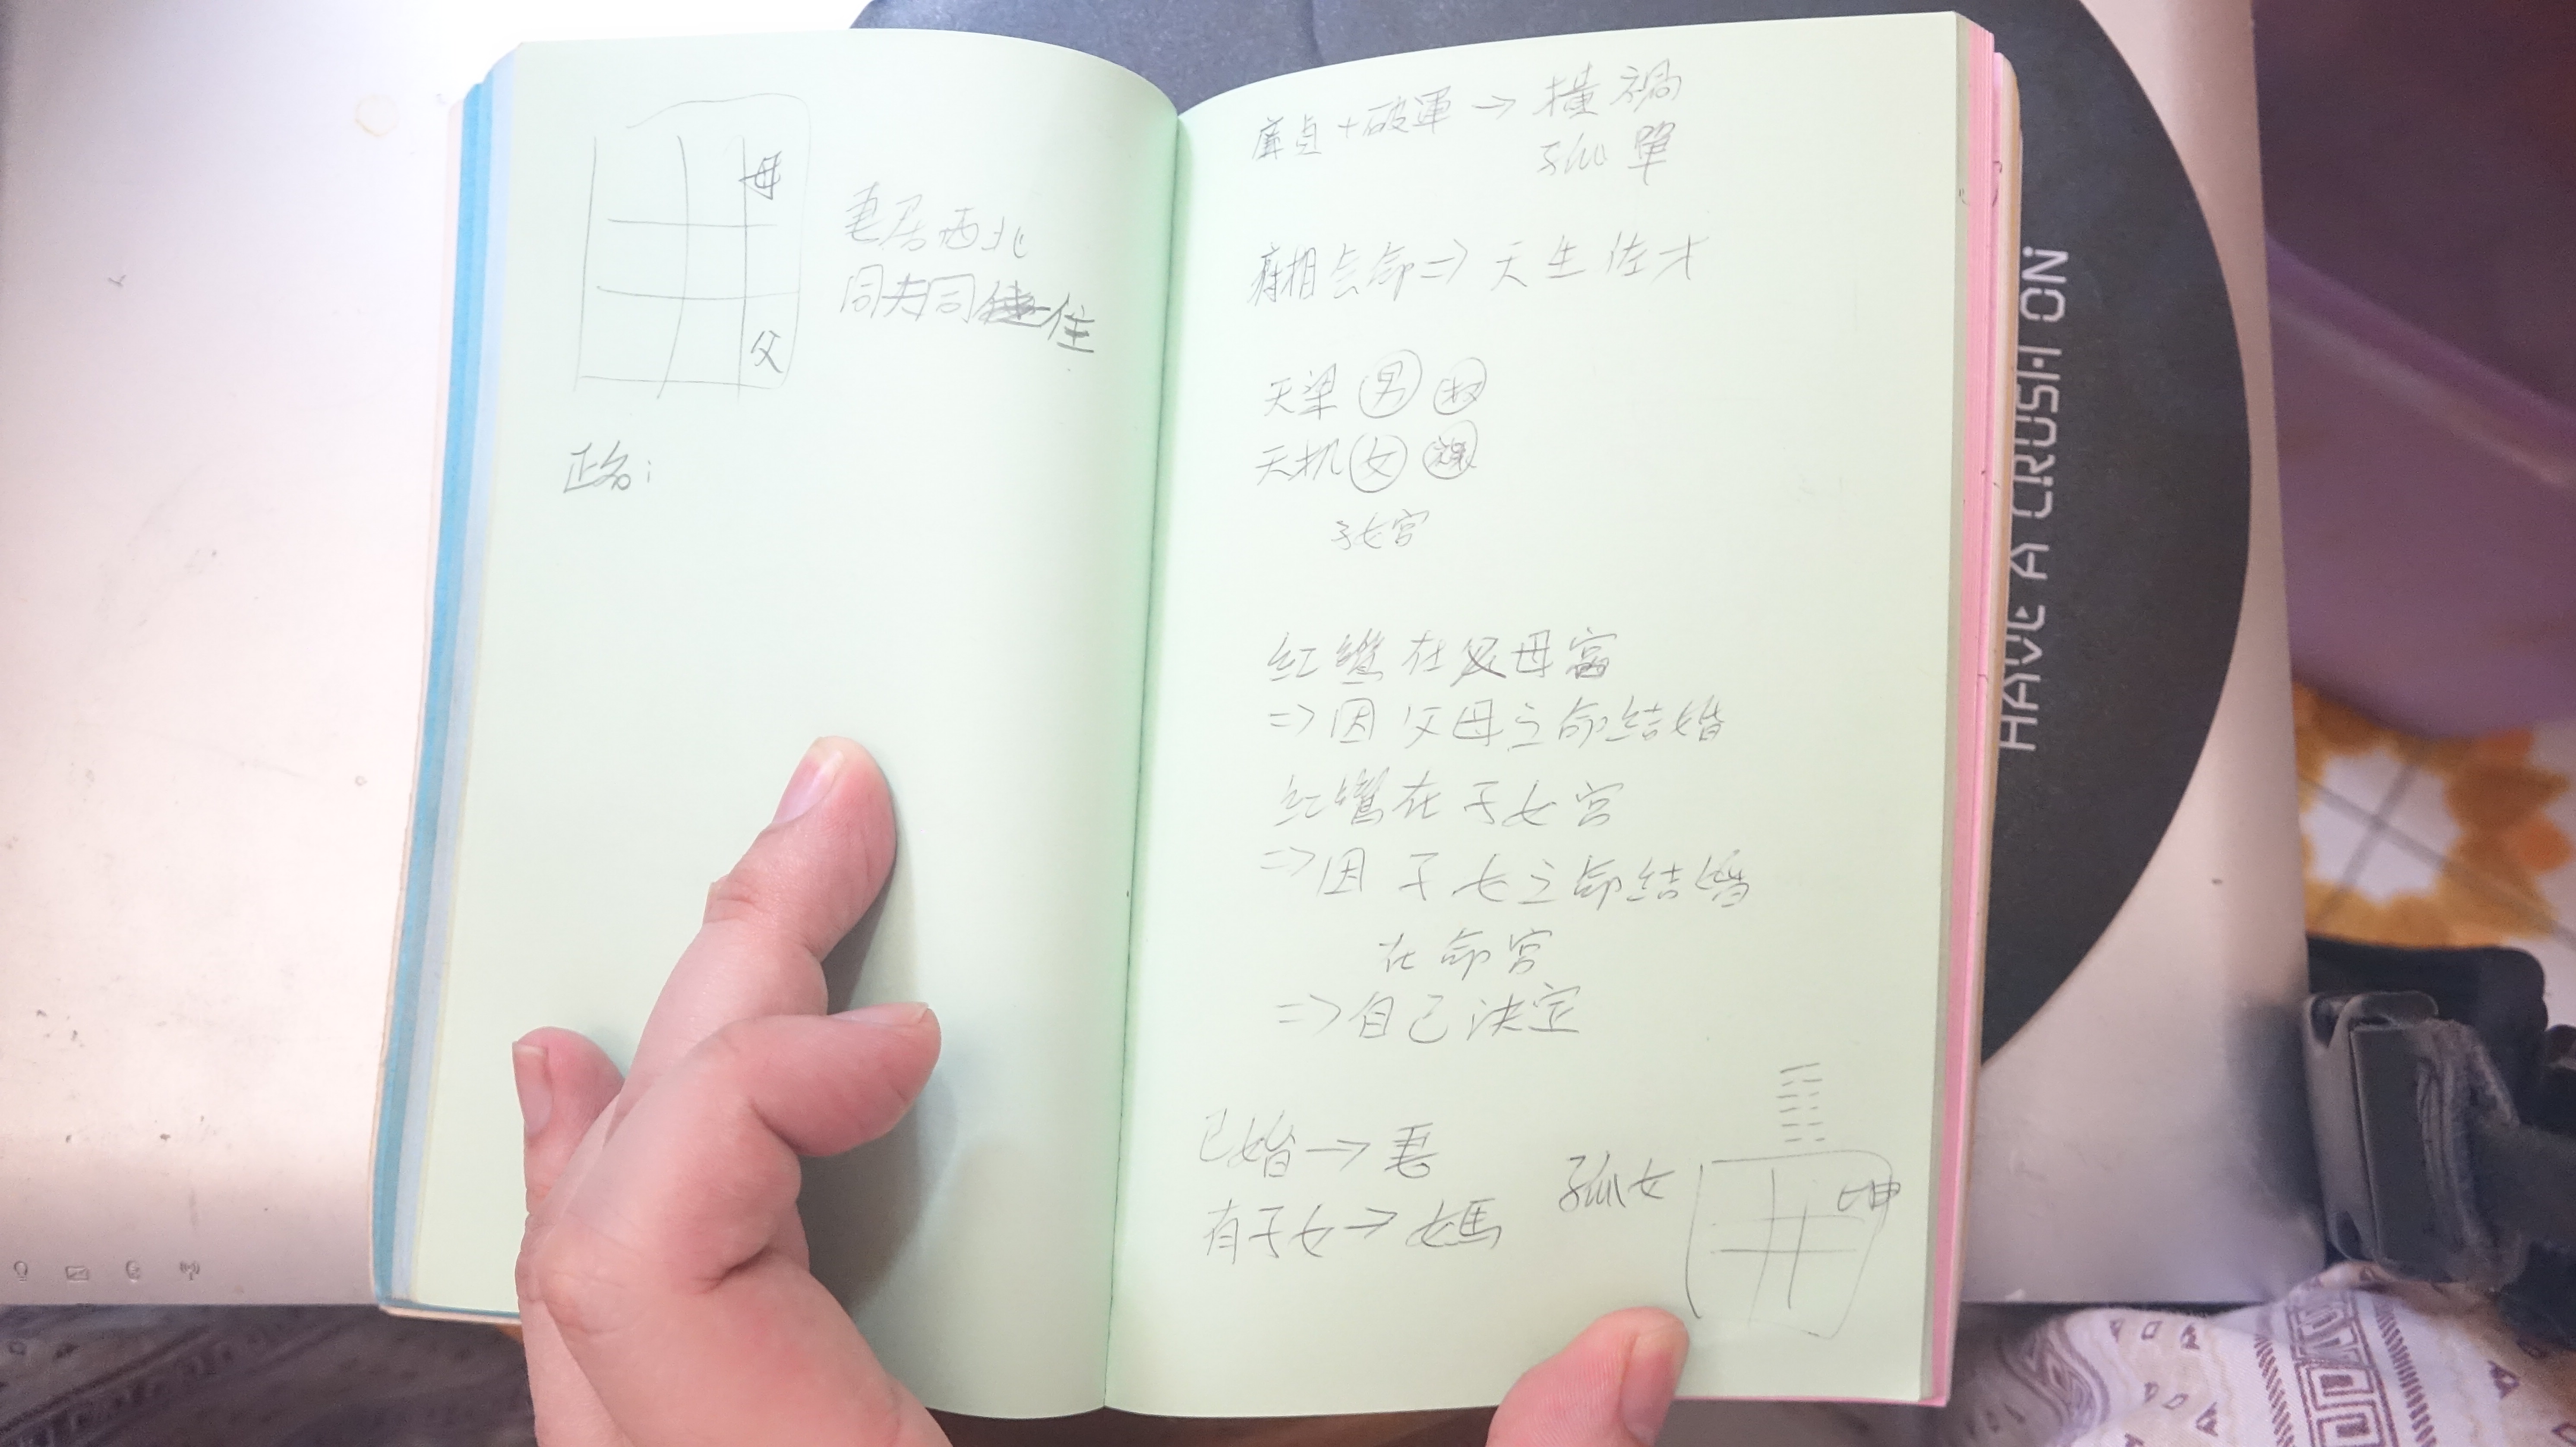 母
父
妻居西北
同夫同住
正名:
廉貞+破軍→橫禍
孤單
府相会命=>天生佐才
天梁 男 权
天机 女 祿
子女宮
紅鸞在父母宮
=>因父母之命結婚
紅鸞在子女宮
=>因子女之命結婚
在命宮
=>自己決定
已婚→妻
有子女→媽
孤女
坤
HAVE A CRUSH ON